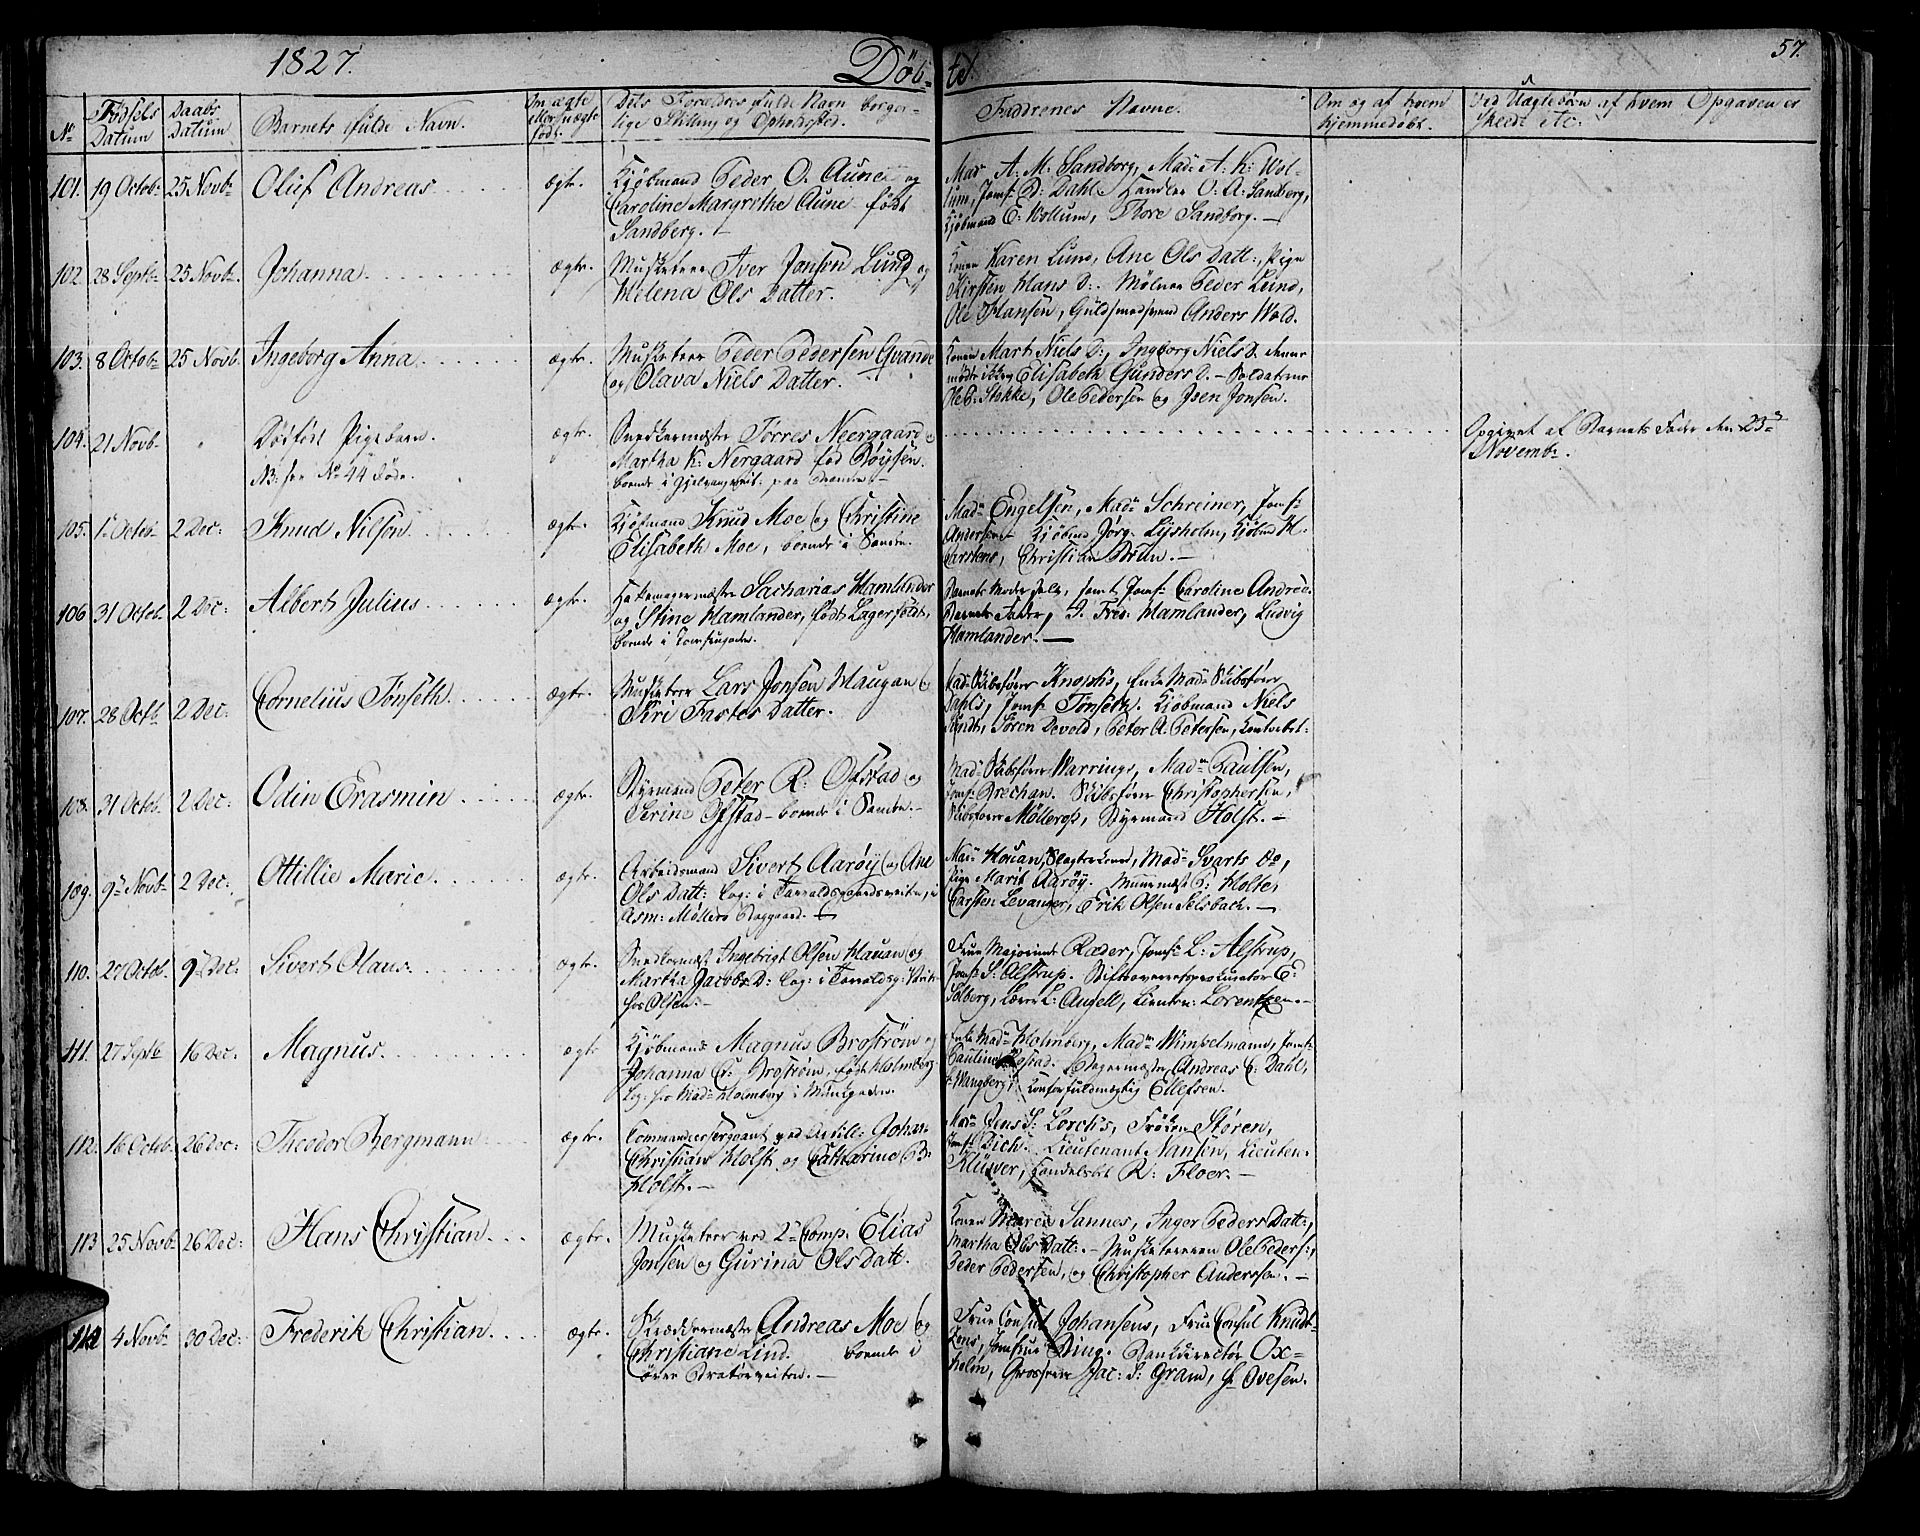 1827. Døb- te. 57.
No Fødsels Datum Daabs Datum Barnets fulde Navn. Om ægte eller uægte født. Dets Forældres fulde Navn borgerlige Stilling og Opholdsted. Faddernes Navne. Om og af hvem hjemmedøbt. Ved Uægtebørn af hvem Opgaven er skeed etc:
101. 19 Octob: 25 Novbr Oluf Andreas ægte. Kjøbmand Peder O. Aune og
Caroline Margrethe Aune født
Sandberg. -
Mad A. M: Sandborg, Mad: A. K: Wol-
lum, Jomf: D: Dahl. Handler O. A: Sandberg,
Kjøbmand E: Wollum, Thore Sandborg. -
102. 28 Septbr 25 Novbr. Johanna. ægte. Musketeer Iver Jonsen Lund og
Helena Ols Datter.
Konen Karen Lund, Ane Ols Datt:, Pige
Kirsten Hans D:. Møller Peder Lund,
Ole Hansen, Guldsmedsvend Anders Wold.
103. 8 Octobr 25 Novb. Ingeborg Anna ægte. Musketeer Peder Pedersen Qvande
og Olava Niels Datter.
Konen Marit Niels D:, Ingborg Niels D. denne
mødte ikke, Elisabeth Gunders D. - Soldaterne
Ole P. Stokke, Ole Pedersen og Joen Jonsen.
104. 21 Novb Dødfødt Pigebarn.
NB: see No 44 Døde.
ægte. Snedkermester Tørres Neergaard &
Martha K: Nergaard fød Bøysen.
boende i
Opgivet af Barnets Fader den 23de
Novembr.
105. 1 Octobr 2 Dec: Knud Nilson ægte. Kjøbmand Knud Moe og Christine
Elisabeth Moe, boende i Sanden.
Madm Engelsen, Madm Schreiner, Jomf:
Andersen. Kjøbmd Jørg: Lysholm, Kjøbmd H.
Carstens, Christian Brun. -
106 31 Octob. 2 Dec: Albert Julius ægte. Hattemagermester Sacharias Hamlander
og Stine Hamlander, født Lagerfoldt,
boende i
Barnets Moder selv, samt Jomf: Caroline Andrée.
Barnets Fader, J. Fred: Hamlander, Ludvig
Hamlander. -
107. 28 Octb 2 Dec: Cornelius Tønseth ægte. Musketeer Lars Jonsen Haugan &
Siri Fastes Datter.
Mad: Skibsfører Knoph's, Enke Mad: Skibsfører
Jomf: Tønseth. Kjøbmand Niels
Lundt, Søren Devold, Peter A. Petersen, Contorbet:
108. 31 Octob. 2 Dec: Odin Erasmin ægte. Styrmand Peter R: Ofstad og
Serine Ofstad - boende i Sanden. -
Mad: Skibsfører Warrings, Madm Paulsen,
Jomf: Grechan. Skibsfører Christophersen,
Skibsfører Møllerop, Styrmand Holst. -
109. 9 Novbr 2 Dec: Ottillie Marie. ægte. Arbeidsmand Sivert Aarøy og Ane
Ols Datt: log: i Tavaldsgaardsveiten, i
Asm: Møllers Baggaard.
Madm Houan, Slagterkone, Madm Svarts Do,
Pige Marit Aarøy. Murermester P: Holte,
Carsten Levanger, Erik Olsen Selsbach. -
110. 27 Octob. 9 Dec: Sivert Olaus. ægte. Snedkermest Ingebrigt Olsen Hauan og
Martha Jacobs D: log: i
hos Olsen. -
Frue Majorinde Ræder, Jomf: L: Alstrup,
Jomf: S: Alstrup. Stiftsoverretsprocurator E:
Solberg, Lærer L: Angell, Lieuten: Lorentzen. -
111. 27 Septbr 16 Dec. Magnus. ægte Kjøbmand Magnus Brostrøm og
Johanna C: Brostrøm, født Holmberg
log: hos Madm Holmberg i Munkgaden.
Enke Madm Holmberg, Madm Wimpelmann, Jomf:
Pauline . Bagermester Andreas C: Dahl,
Wangberg, Contorfuldmægtig Ellefsen.
112. 16 Octob. 26 Dec: Theodor Bergmann ægte. Commandeersergeant ved Artill: Johan
Christian Holst og Catharine B:
Holst. -
Madm Jens S: Lorch's, Frøken Støren,
Jomf: Dich. Lieutenant Nansen, Lieuten:
Klüwer, Handelsbet: R: Floer. -
113 25 Novbr 26 Dec: Hans Christian ægte. Musketeer ved 2 Comp: Elias
Jonsen og Gurina Ols Datt.
Konen Maren Sannes, Inger Peders Datt:,
Martha Ols Datt:. - Musketererne Ole Peders:,
Peder Pedersen, og Christopher Andersen. -
114 4 Novbr 30 Dec: Frederik Christian. ægte. Skræddermester Andreas Moe og
Christiane Lind. boende i
øvre Bratørveiten. -
Frue Consul Johansens, Frue Consul Knudt-
zens, Jomfrue Bing. Bankdirectør Ox-
holm, Grosserer Jac: S: Gram, Hr Ovesen.